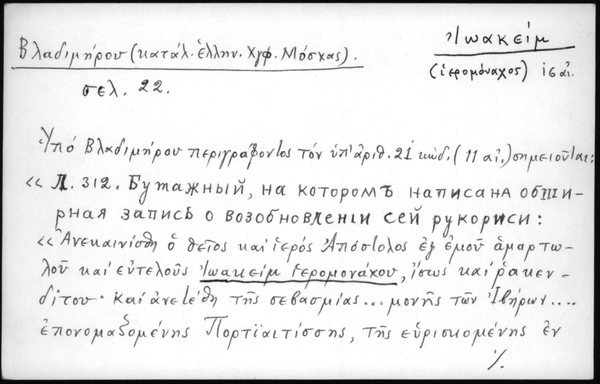 Βλαδιμήρου (κατάλ. ἑλλην. Χγφ. Μόσχας).
Ἰωακείμ
(ἱερομόναχος) 16 αἰ.
σελ. 22.
Ὑπό Βλαδιμήρου περιγράφοντος τόν ὑπ' ἀριθ. 21 κώδ. (11 αἰ.) σημειοῦται:
«Л. 312. Бумажный, на которомъ написана обши-
рная запись о возобновленіи сей рукописи:
«Ἀνεκαινίσθη ὁ θεῖος καί ἱερός Ἀπόστολος ἐξ ἐμοῦ ἁμαρτω-
λοῦ καί εὐτελοῦς Ἰωακείμ ἱερομονάχου, ἴσως καί ῥακεν-
δίτου· καί ἀνετέθη τῆς σεβασμίας... μονῆς τῶν Ἰβήρων....
ἐπονομαζομένης Πορτϊαιτίσσης, τῆς εὑρισκομένης ἐν
./.